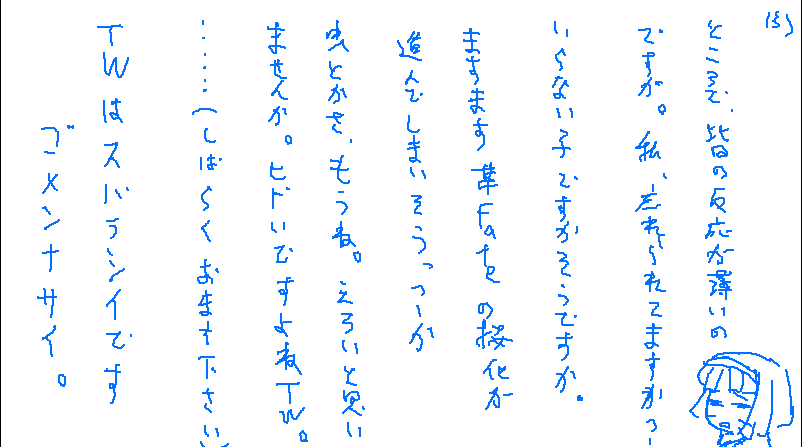 ところで、皆の反応が薄いの
ですが。私、忘れられてますかっー
いらない子ですかそうですか。
ますます某Fateの桜化が
進んでしまいそうっつーか
虫とかさ、もうね。えろいと思い
ませんか。ヒドいですよねTW。
……(しばらくおまち下さい)
TWはスバラシイです
ゴメンナサイ。